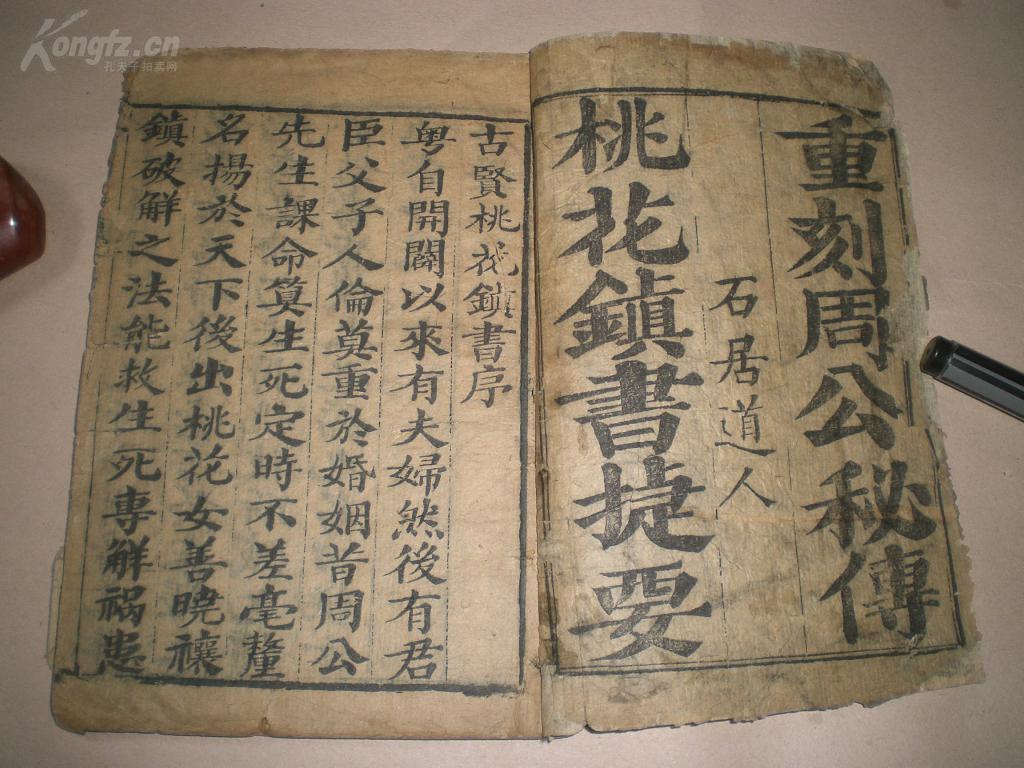 重刻周公秘傳
石居道人
桃花鎮書捷要
古賢桃花鎮書序
粤自開闢以來有夫婦然後有君
臣父子人倫莫重於婚姻昔周公
先生課命筭生死定時不差毫釐
名揚於天下後出桃花女善曉禳
鎮破解之法能救生死專解禍患
Kongfz.cn
孔夫子拍卖网